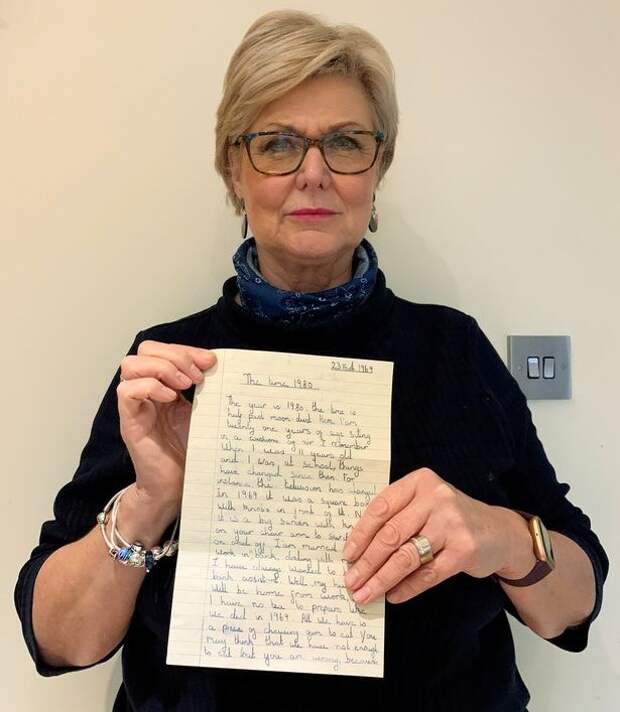 23rd 1969
The time 1980.
The year is 1980. the time is
half past moon dust time I am
twenty one years of age siting
in a cushone of air I remember
When I was 11 years old
and I was at school, things
have changed since then. For
instance the television has
In 1969 it was a square box
with knobs in front of it. N
it is a big screen with
on your chair arm to swit
on and off. I am married
work in bank
I have always wanted to b
bank assist. Well my hus
will be home from work
I have no tea to prepare like
we did in 1969. All we have is
a piece of chewing gum to eat You
may think that we have not enough
to eat but you are wrong, because